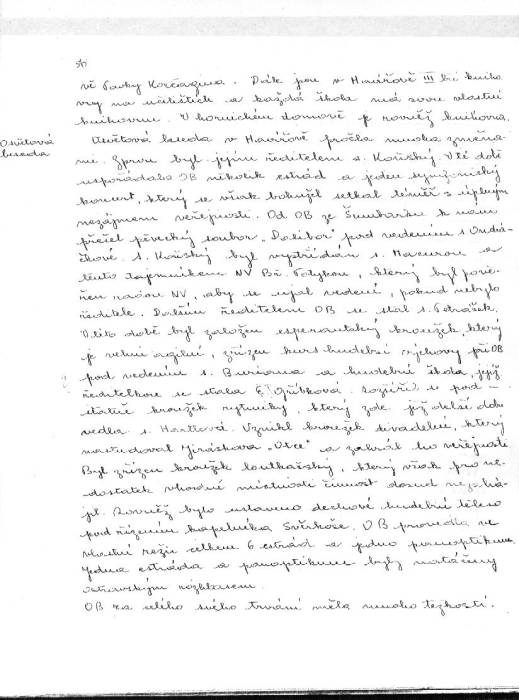 vě Pavky Korčagina. Dále jsou v Havířově III bri kniho
vny na učilištích a každá škola má svou vlastní
knihovnu. V hornickém domově je rovněž knihovna.
Osvětová
beseda
Osvětová beseda v Havířově prošla mnoha změna-
mi. Zprvu byl jejím ředitelem s. Kořistký. V té době
uspořádala OB několik estrád a jeden symfonický
koncert, který se však bohužel setkal téměř s úplným
nezájmem veřejnosti. Od OB ze Šumbarku k nám
přešel pěvecký soubor "Dalibor" pod vedením s. Ondrá-
čkové. s. byl vystřídán s. Macurou a
tento tajemníkem NV Bř. Potykou, který byl pově-
řen radou NV, aby se ujal vedení, pokud nebylo
ředitele. Dalším ředitelem OB se stal s. Petrášek.
V této době byl založen esperantský kroužek, který
je velmi agilní, zřízen kurs hudební výchovy při OB
pod vedením s. Buriana a hudební škola, jejíž
ředitelkou se stala s. Rozšířil se pod-
statně kroužek rytmiky, který zde již delší dobu
vedla s. Vznikl kroužek divadelní, který
nastudoval Jiráskova "Otce" a zahrál ho veřejnosti.
Byl zřízen kroužek loutkářský, který však pro ne-
dostatek vhodné místnosti činnost dosud nezahá-
jil. Rovněž bylo ustaveno dechové hudební těleso
pod řízením kapelníka OB provedla ve
vlastní režii celkem 6 estrád a jedno panoptikum.
Jedna estráda a panoptikum byly natáčeny
ostravským rozhlasem.
OB za celého svého trvání měla mnoho těžkostí.